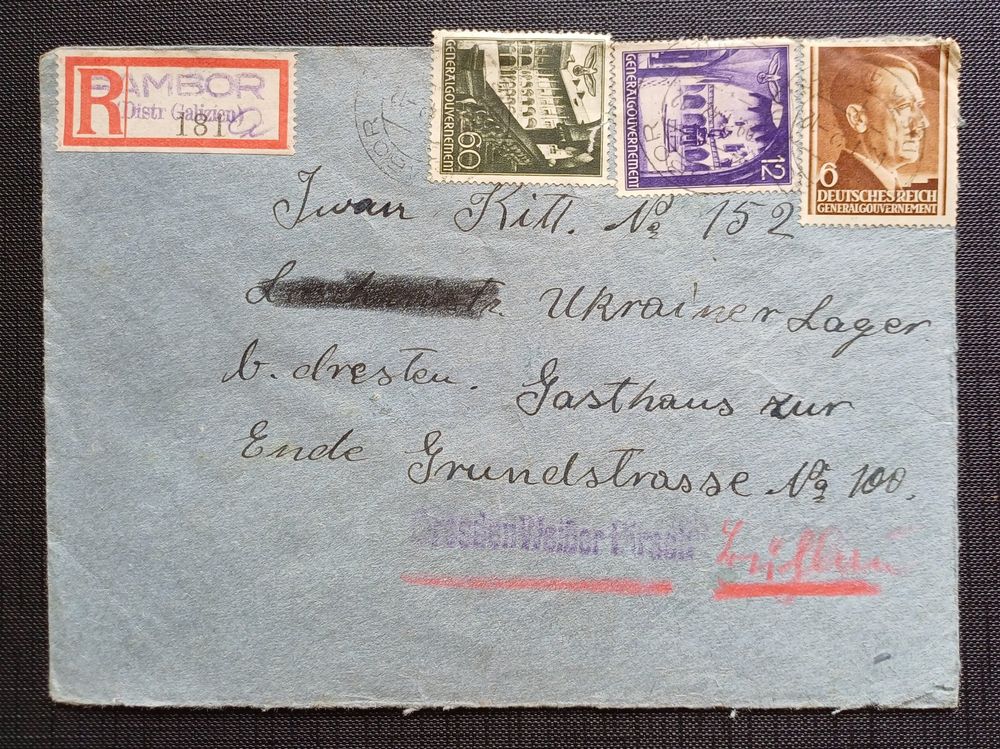 R SAMBOR
(Distr Galizien)
181 a
GENERALGOUVERNEMENT
60
GENERALGOUVERNEMENT
12
6
DEUTSCHES REICH
GENERALGOUVERNEMENT
Iwan Kitt. № 152
Ukrainer Lager
b. dresten. Gasthaus zur
Ende Grundstrasse № 100.
Dresden Weißer Hirsch